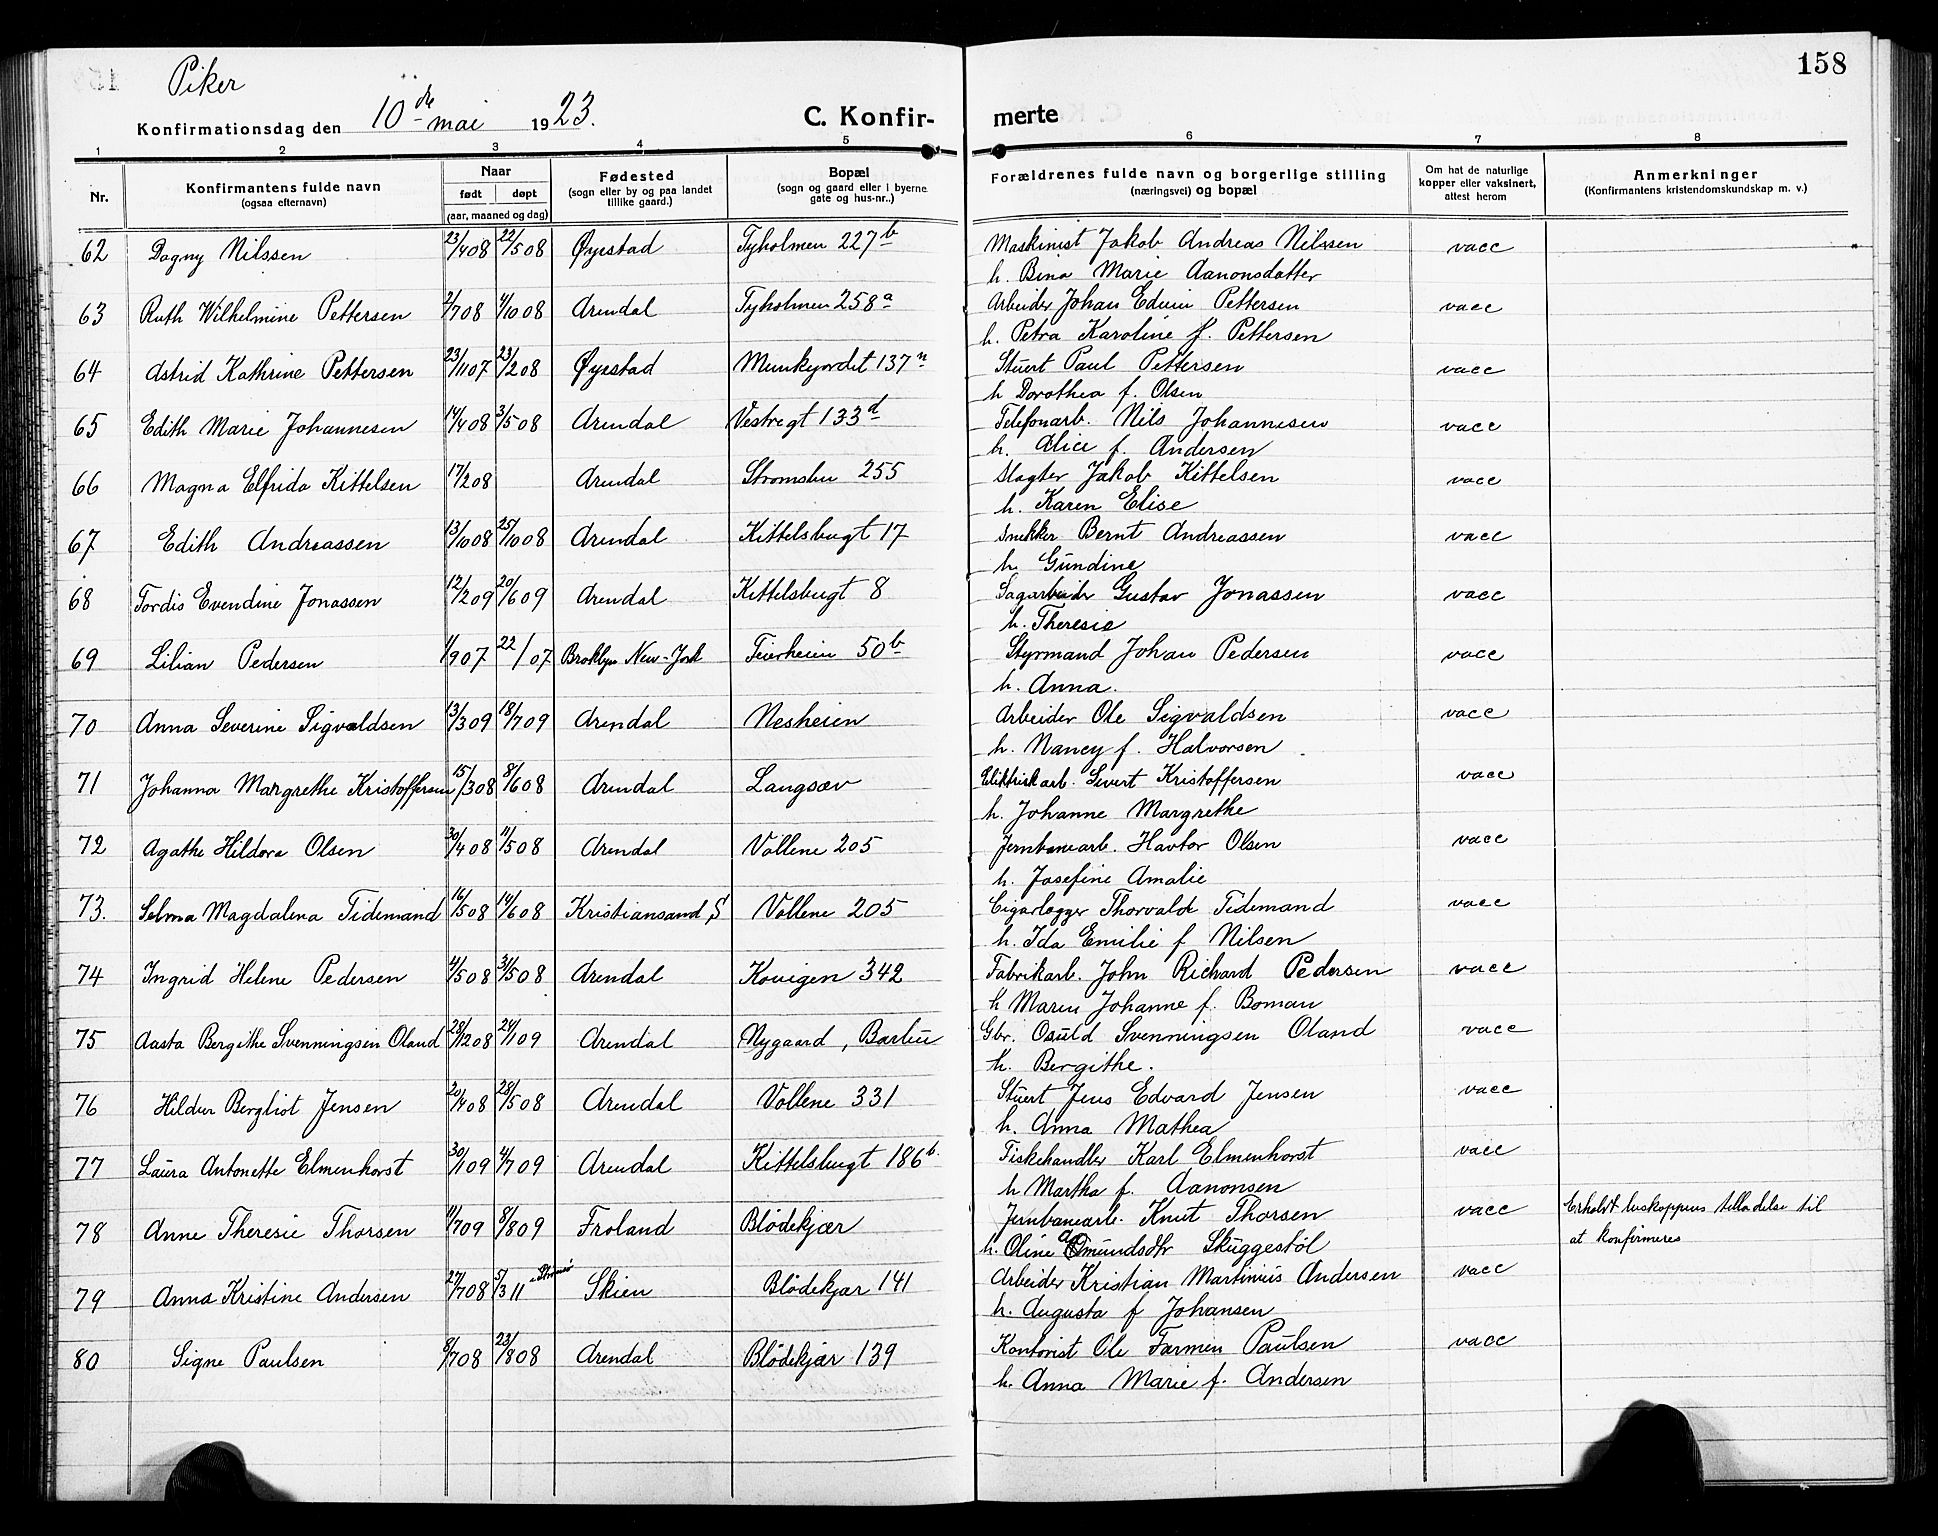 158
Piker
Konfirmationsdag den 10de mai 1923.
C. Konfirmerte
1 2 3 4 5 6 7 8
Nr.
Konfirmantens fulde navn
(ogsaa efternavn)
Naar
født døpt
(aar, maaned og dag)
Fødested
(sogn eller by og paa landet
tillike gaard.)
Bopæl
(sogn og gaard eller i byerne
gate og hus-nr..)
Forældrenes fulde navn og borgerlige stilling
(næringsvei) og bopæl
Om hat de naturlige
kopper eller vaksinert,
attest herom
Anmerkninger
(Konfirmantens kristendomskundskap m. v.)
62 Dagny Nilssen 23/4 08 22/5 08 Øyestad Tyholmen 227b Maskinist Jakob Andreas Nilssen vacc
h. Bina Marie Aanonsdatter
63 Ruth Wilhelmine Pettersen 2/7 08 4/10 08 Arendal Tyholmen 258a Arbeider Johan Edvin Pettersen vacc
h. Petra Karoline f. Pettersen
64 Astrid Kathrine Pettersen 23/11 07 23/2 08 Øyestad Munkejordet 137n Stuert Paul Pettersen vacc
h Dorothea f. Olsen
65 Edith Marie Johannesen 14/4 08 3/5 08 Arendal Vestregt 133d Telefonarb. Nils Johannesen vacc
h. Alice f. Andersen
66 Magna Elfrida Kittelsen 17/2 08 Arendal Strømsbu 255 Slagter Jakob Kittelsen vacc
h. Karen Elise
67 Edith Andreassen 13/10 08 25/10 08 Arendal Kittelsbugt 17 Snekker Bernt Andreassen vacc
h. Gundine
68 Tordis Evendine Jonassen 12/2 09 20/6 09 Arendal Kittelsbugt 8 Sagarbeider Gustav Jonassen vacc
h. Theresie
69 Lilian Pedersen 1/9 07 22/ 07 Broklyn New-York Feierheien 50b Styrmand Johan Pedersen vacc
h. Anna.
70 Anna Severine Sigvaldsen 13/3 09 18/7 09 Arendal Nesheien Arbeider Ole Sigvaldsen vacc
h. Nancy f. Halvorsen
71 Johanna Margrethe Kristoffersen 15/3 08 8/6 08 Arendal Langsæv Elektriskarb. Sivert Kristoffersen vacc
h. Johanne Margrethe
72 Agathe Hildora Olsen 30/4 08 11/5 08 Arendal Vollene 205 Jernbanearb. Havtor Olsen vacc
h. Josefine Amalie
73. Selma Magdalena Tidemand 16/5 08 14/6 08 Kristiansand S Vollene 205 Cigarlægger Thorvald Tidemand vacc
h. Ida Emilie f Nilsen
74 Ingrid Helene Pedersen 4/5 08 31/5 08 Arendal Kovigen 342 Fabrikarb. John Richard Pedersen vacc
h Maren Johanne f. Boman
75 Aasta Bergithe Svenningsen Øland 28/12 08 24/1 09 Arendal Nygaard, Barbu Gbr. Osuld Svenningsen Øland vacc
h. Bergithe.
76 Hildur Bergliot Jensen 20/4 08 28/5 08 Arendal Vollene 331 Stuert Jens Edvard Jensen vacc
h. Anna Mathea
77 Laura Antonette Elmenhorst 30/1 09 4/7 09 Arendal Kittelsbugt 186b. Fiskehandler Karl Elmenhorst vacc
h Martha f. Aanonsen
78 Anne Theresie Thorsen 11/7 09 8/8 09 Froland Blødekjær Jernbanearb. Knut Thorsen vacc Erholdt biskoppens tilladelse til
h. Oline Omundsdtr Skuggestøl at konfirmeres
79 Anna Kristine Andersen 27/7 08 5/3 11 Skien Blødekjær 141 Arbeider Kristian Martinius Andersen vacc
h. Augusta f Johansen
80 Signe Paulsen 8/7 08 23/8 08 Arendal Blødekjær 139 Kontorist Ole Farmen Paulsen vacc
h. Anna Marie f. Andersen